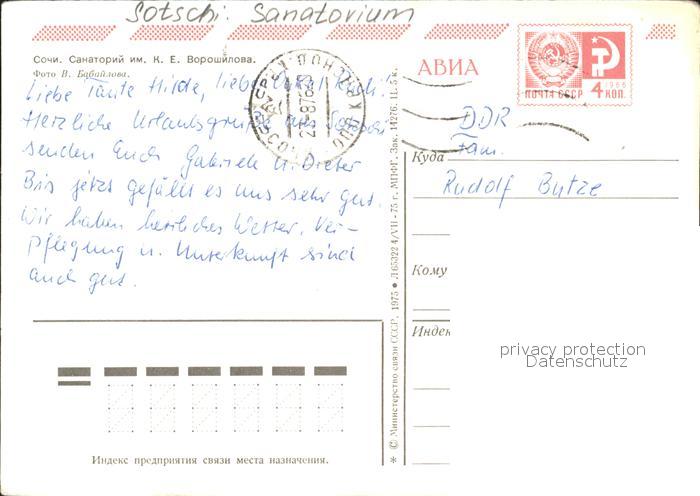 Sotschi. Sanatorium
Сочи. Санаторий им. К. Е. Ворошилова.
Фото В. Бабайлова.
Liebe Tante Hilde, lieber Onkel Rudi!
Herzliche Urlaubsgrüße aus Sotschi
senden Euch Gabriele u. Dieter
Bis jetzt gefällt es uns sehr gut.
Wir haben herrliches Wetter. Ver-
pflegung u. Unterkunft sind
auch gut.
Индекс предприятия связи места назначения.
* © Министерство связи СССР. 1975 ● Л65322 4/VII-75 г., МПФГ. Зак. 14276. Ц. 5 к.
АВИА
ПОЧТА СССР
1966
4 КОП.
DDR
Fam.
Куда
Rudolf Butze
Кому
Индек
privacy protection
Datenschutz